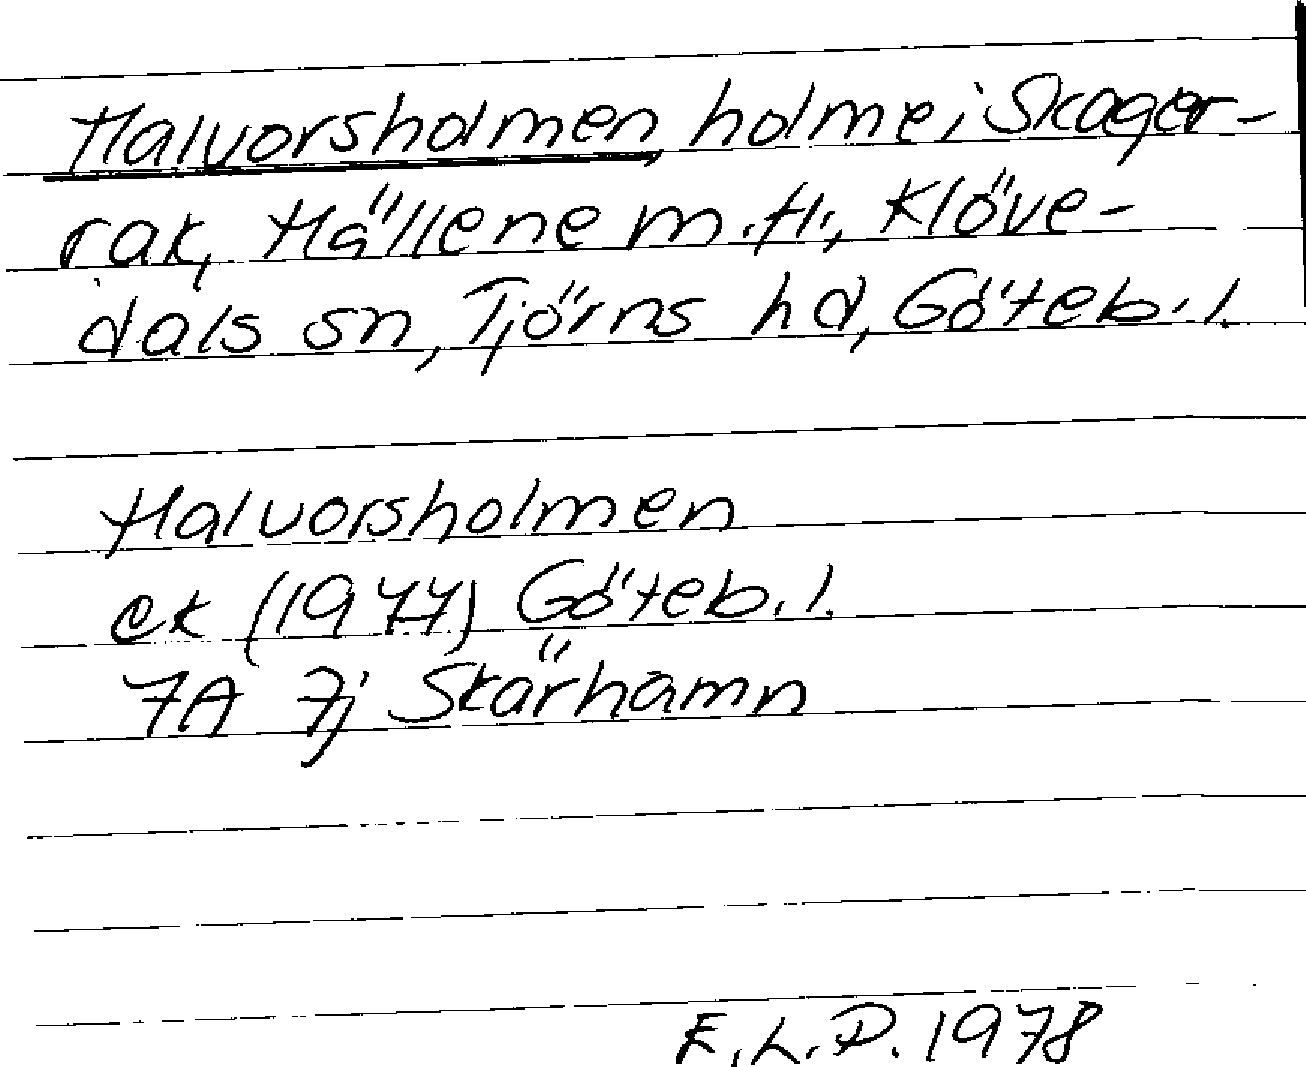 Halvorsholmen, holme i Skager-
rak, Hällene m.fl., Klöve-
dals sn, Tjörns hd, Göteb. l.
Halvorsholmen
ek (1977) Göteb. l.
7A 7j Skärhamn
E.L.P. 1978